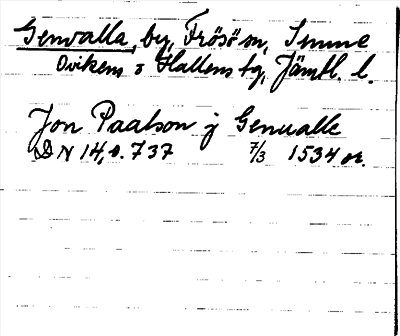 Genvalla, by, Frösö sn, Sunne
Ovikens o Hallens tg, Jämtl. l.
Jon Paalson j Genualle
DN 14, s. 737 7/3 1534 or.